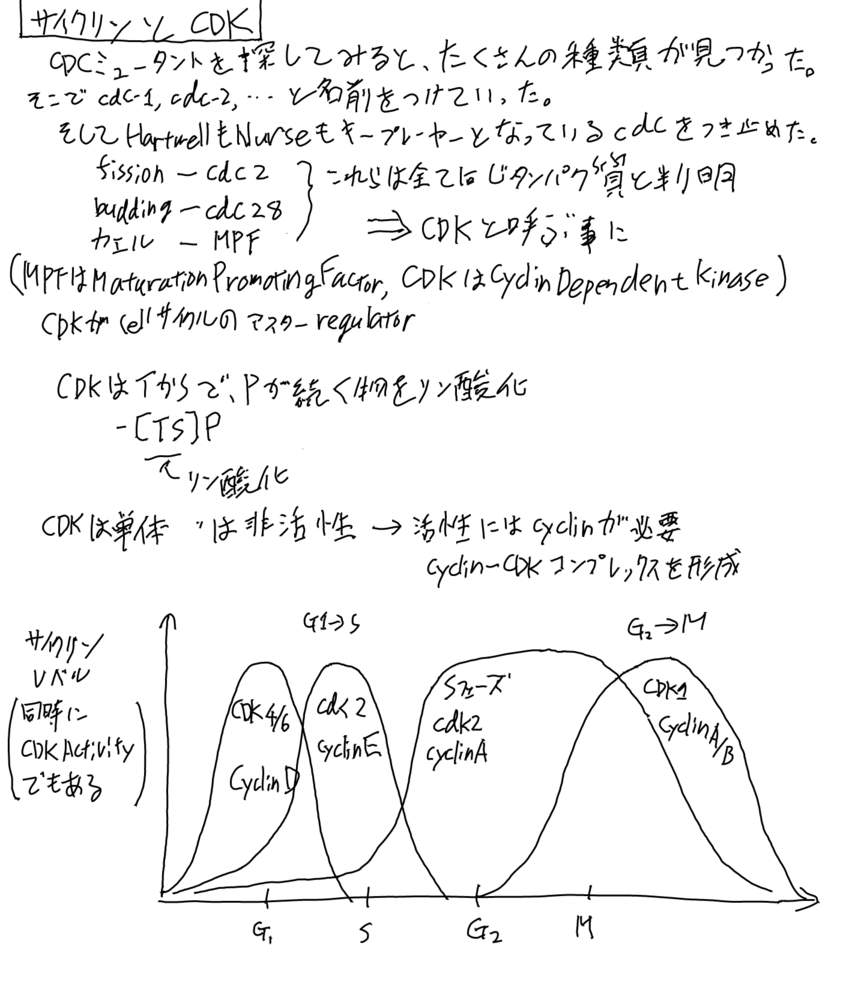 サイクリンと CDK
CDCミュータントを探してみると、たくさんの種類が見つかった。
そこで cdc-1, cdc-2, … と名前をつけていった。
そして HartwellもNurseもキープレーヤーとなっているcdcをつき止めた。
fission ー cdc2
budding ー cdc28
カエル ー MPF
これらは全て同じタンパク質と判明
⇒ CDKと呼ぶ事に
(MPFはMaturation Promoting Factor, CDKはCyclin Dependent Kinase)
CDKが cellサイクルの マスター regulator
CDKは で、Pが続く物をリン酸化
-[TS]P
リン酸化
CDKは単体 は非活性 → 活性には cyclinが必要
cyclinーCDK コンプレックスを形成
サイクリン
レベル
(同時に
CDK Activity
でもある)
G1→S
G2→M
CDK4/6
CyclinD
cdk2
cyclinE
Sフェーズ
cdk2
cyclinA
CDK1
cyclinA/B
G1 S G2 M